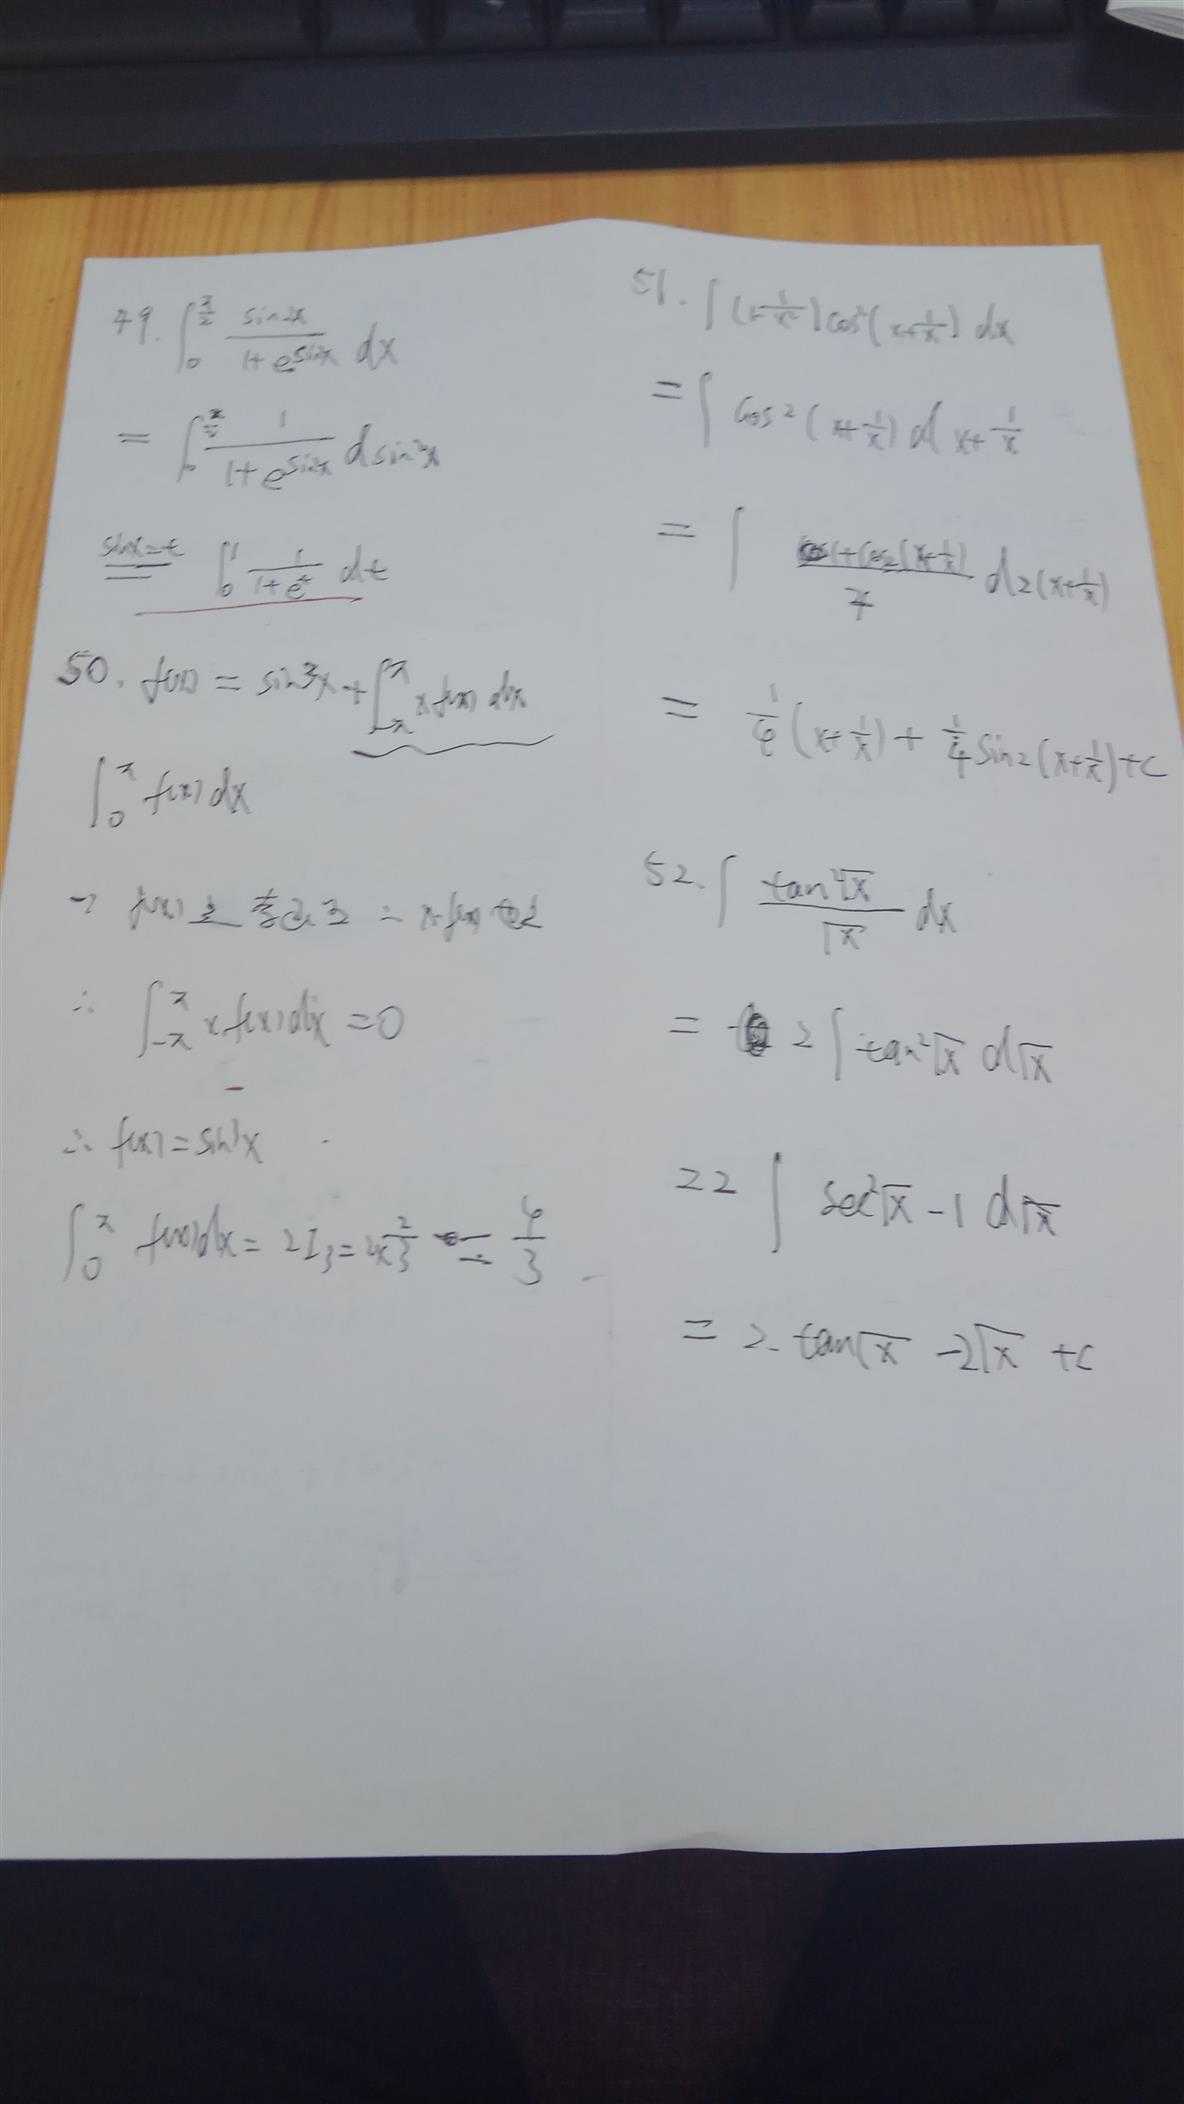 49. ∫₀^(π/2) sin2x/(1+e^(sin²x)) dx
= ∫₀^(π/2) 1/(1+e^(sin²x)) dsin²x
sin²x=t ∫₀¹ 1/(1+e^t) dt
50. f(x) = sin³x + ∫_(-π)^π x f(x) dx
∫₀^π f(x) dx
∴ ∫_(-π)^π x f(x) dx = 0
∴ f(x) = sin³x
∫₀^π f(x) dx = 2I₃ = 2×2/3 = 4/3
51. ∫(1-1/x²)cos²(x+1/x) dx
= ∫ cos²(x+1/x) d x+1/x
= ∫ (1+cos2(x+1/x))/4 d2(x+1/x)
= 1/4 (x+1/x) + 1/4 sin2(x+1/x)+C
52. ∫ tan²√x/√x dx
= 2∫tan²√x d√x
=2 ∫ sec²√x - 1 d√x
= 2 tan√x - 2√x + C